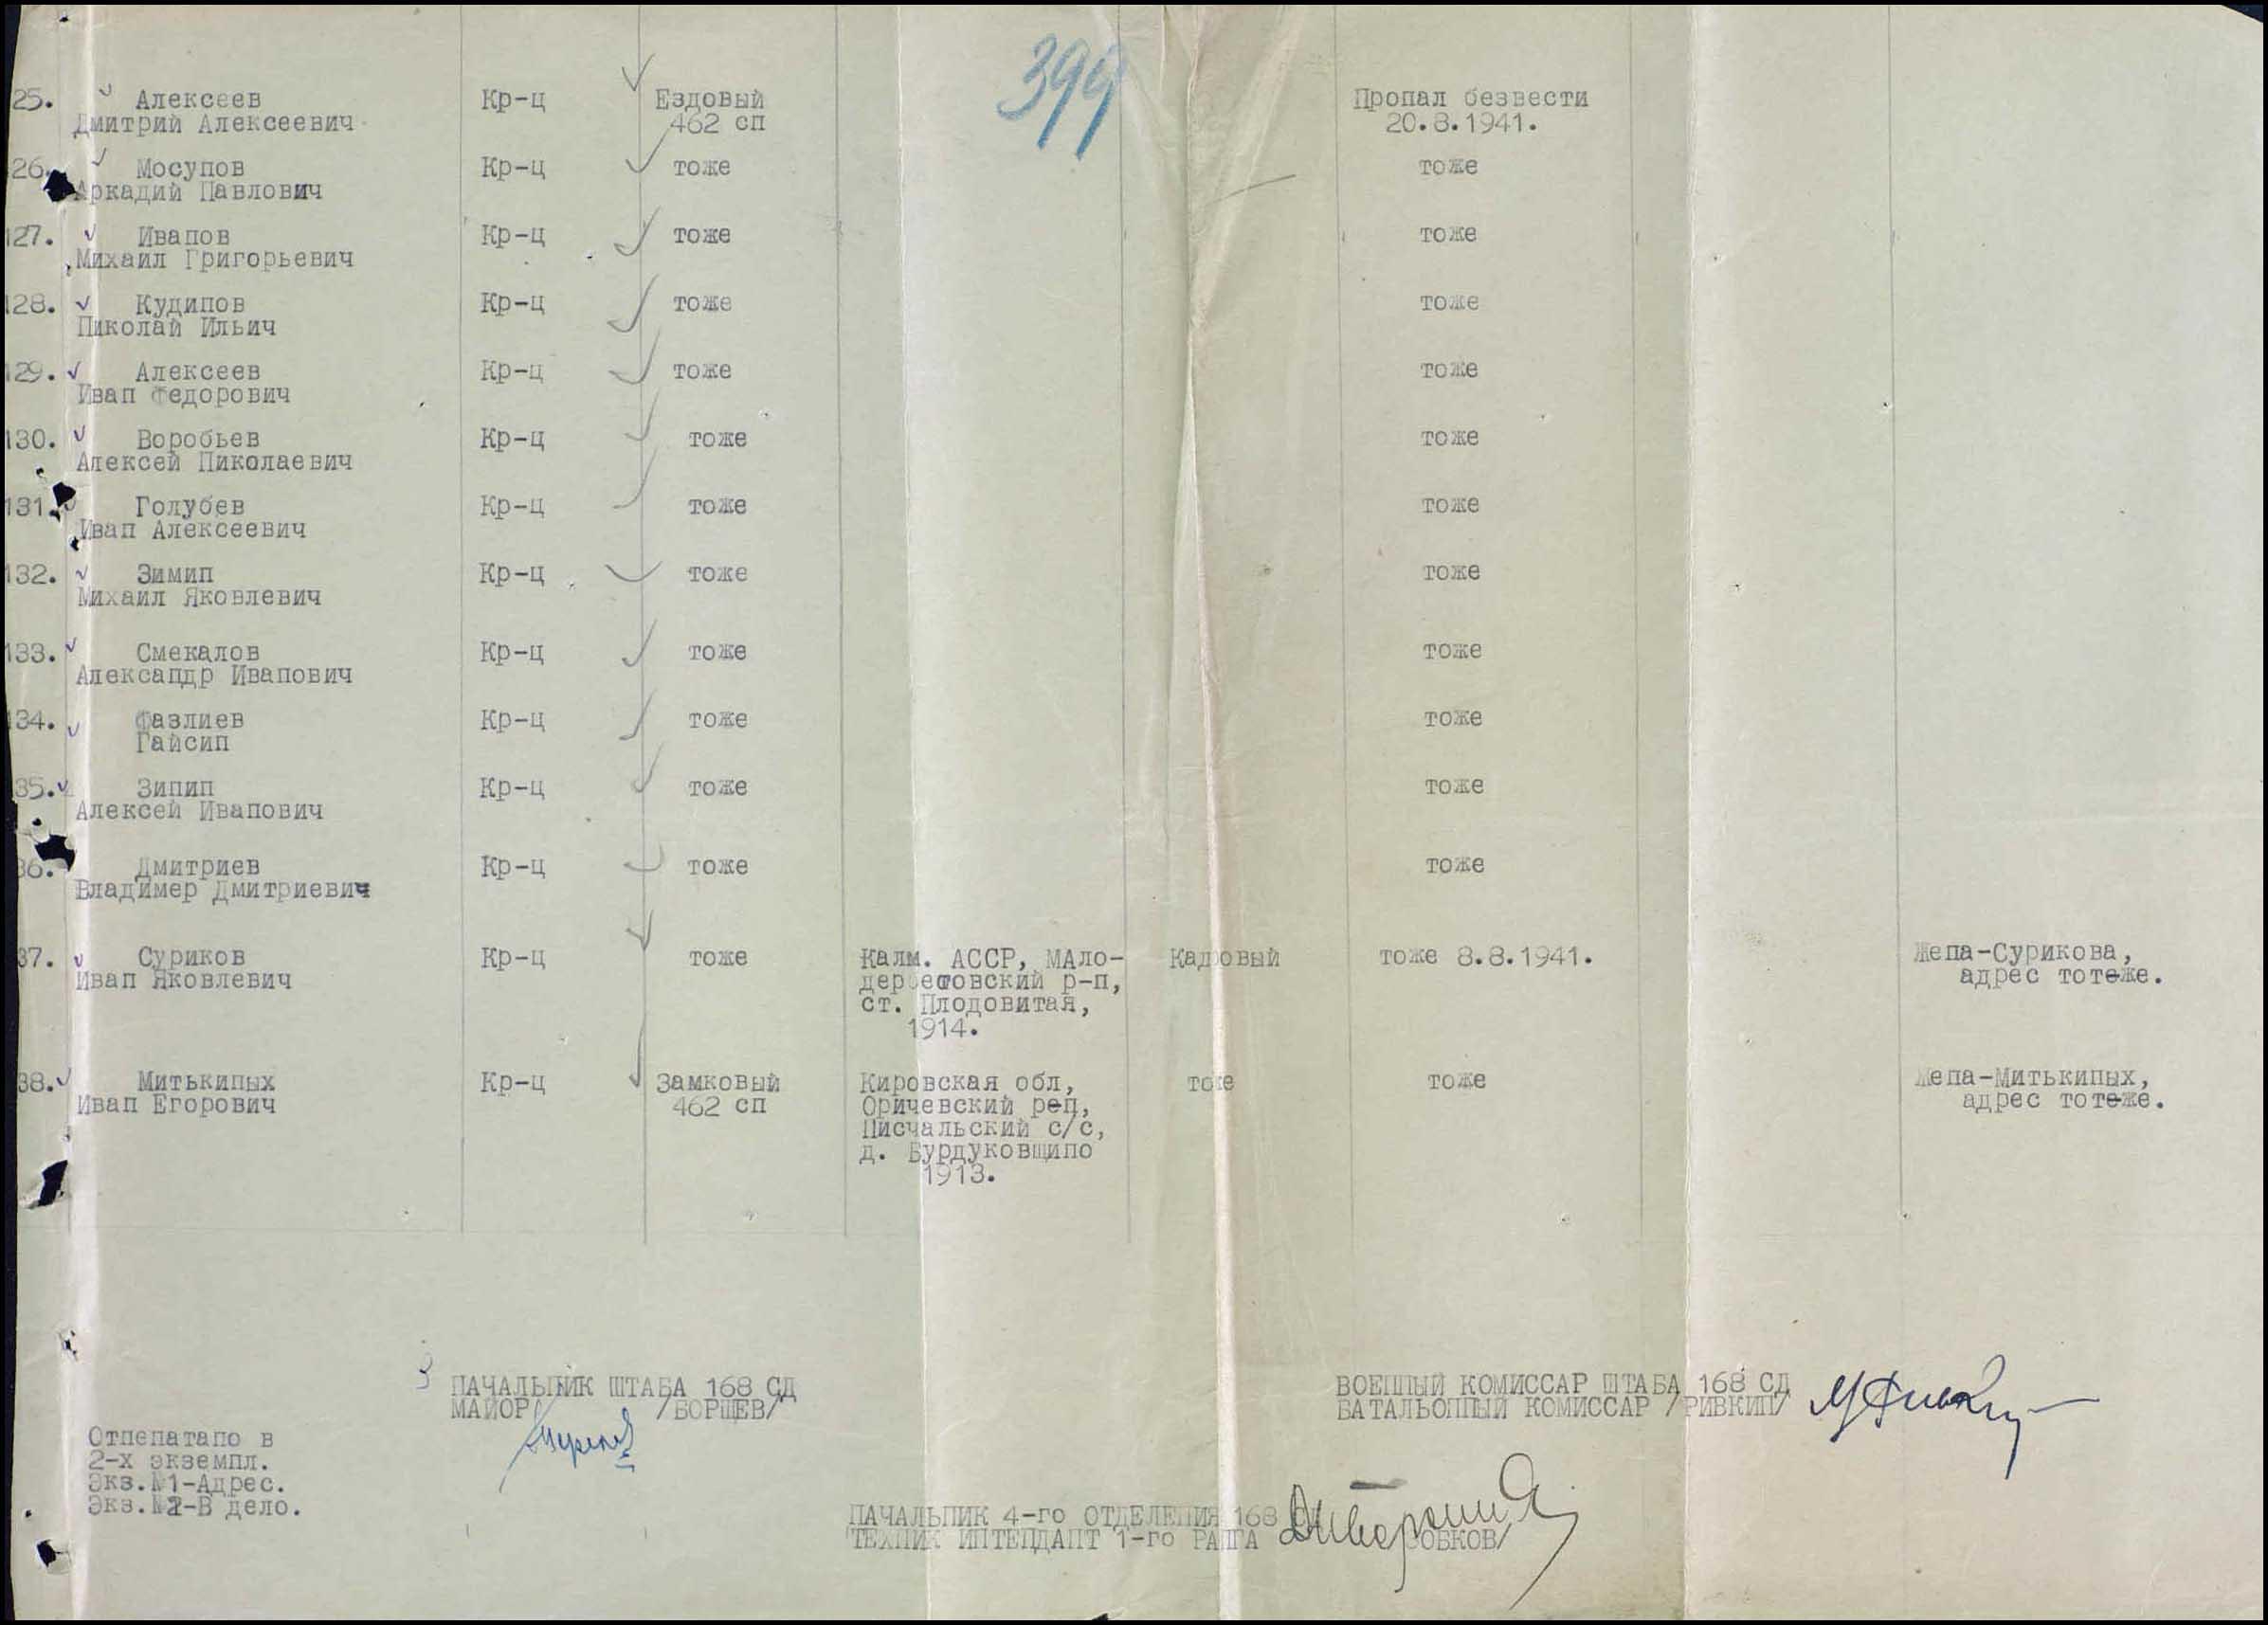 399
25. Алексеев Кр-ц Ездовый Пропал безвести
Дмитрий Алексеевич 462 сп 20.8.1941.
26. Мосупов Кр-ц тоже тоже
Аркадий Павлович
127. Ивапов Кр-ц тоже тоже
Михаил Григорьевич
128. Кудипов Кр-ц тоже тоже
Пиколай Ильич
129. Алексеев Кр-ц тоже тоже
Ивап Федорович
130. Воробьев Кр-ц тоже тоже
Алексей Пиколаевич
131. Голубев Кр-ц тоже тоже
Ивап Алексеевич
132. Зимип Кр-ц тоже тоже
Михаил Яковлевич
133. Смекалов Кр-ц тоже тоже
Алексапдр Ивапович
134. Фазлиев Кр-ц тоже тоже
Гайсип
35. Зипип Кр-ц тоже тоже
Алексей Ивапович
36. Дмитриев Кр-ц тоже тоже
Владимер Дмитриевич
37. Суриков Кр-ц тоже Калм. АССР, МАло- Кадровый тоже 8.8.1941. Жепа-Сурикова,
Ивап Яковлевич дербетовский р-п, адрес тотже.
ст. Плодовитая,
1914.
38. Митькипых Кр-ц Замковый Кировская обл, тоже тоже Жепа-Митькипых,
Ивап Егорович 462 сп Оричевский р-п, адрес тотже.
Писчальский с/с,
д. Бурдуковщипо
1913.
ПАЧАЛЬПИК ШТАБА 168 СД
МАЙОР /БОРЩЕВ/
ВОЕППЫЙ КОМИССАР ШТАБА 168 СД
БАТАЛЬОППЫЙ КОМИССАР /РИВКИП/
Отпепатапо в
2-х экземпл.
Экз.№1-Адрес.
Экз.№2-В дело.
ПАЧАЛЬПИК 4-го ОТДЕЛЕПИЯ 168 СД
ТЕХПИК ИПТЕПДАПТ 1-го РАПГА ОБКОВ/